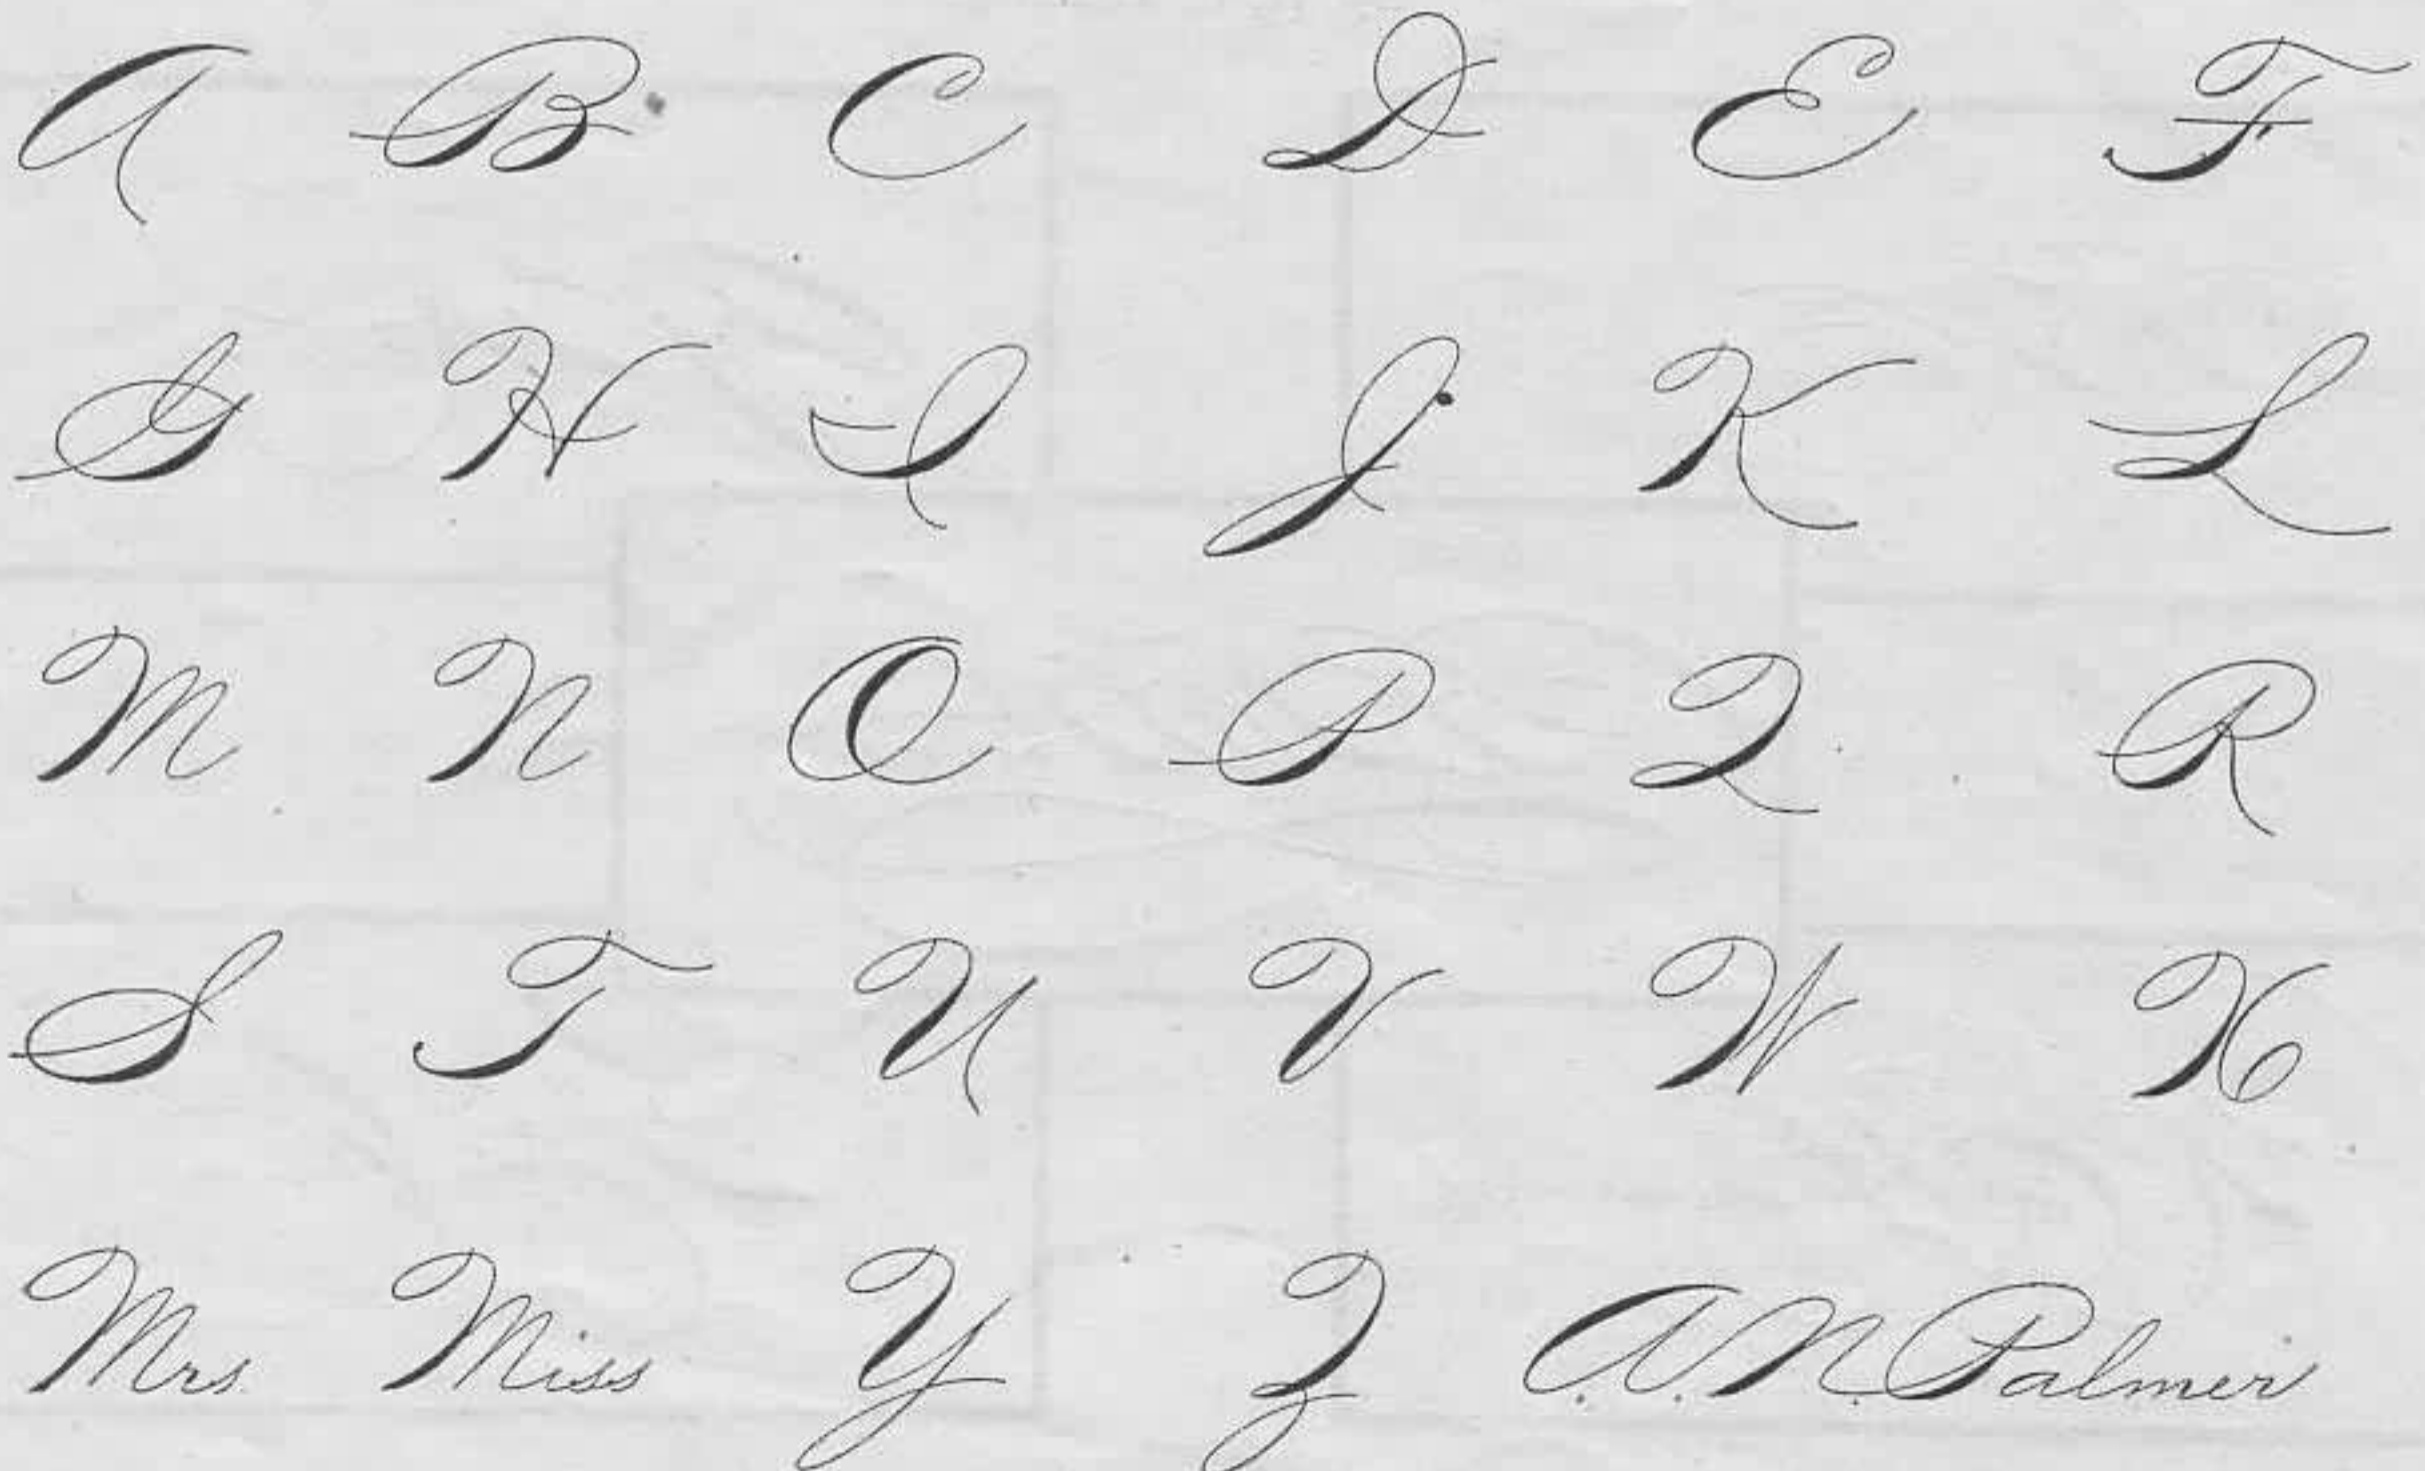 A B C D E F
G H I J K L
M N O P Q R
S T U V W X
Mrs Miss Y Z A. N. Palmer